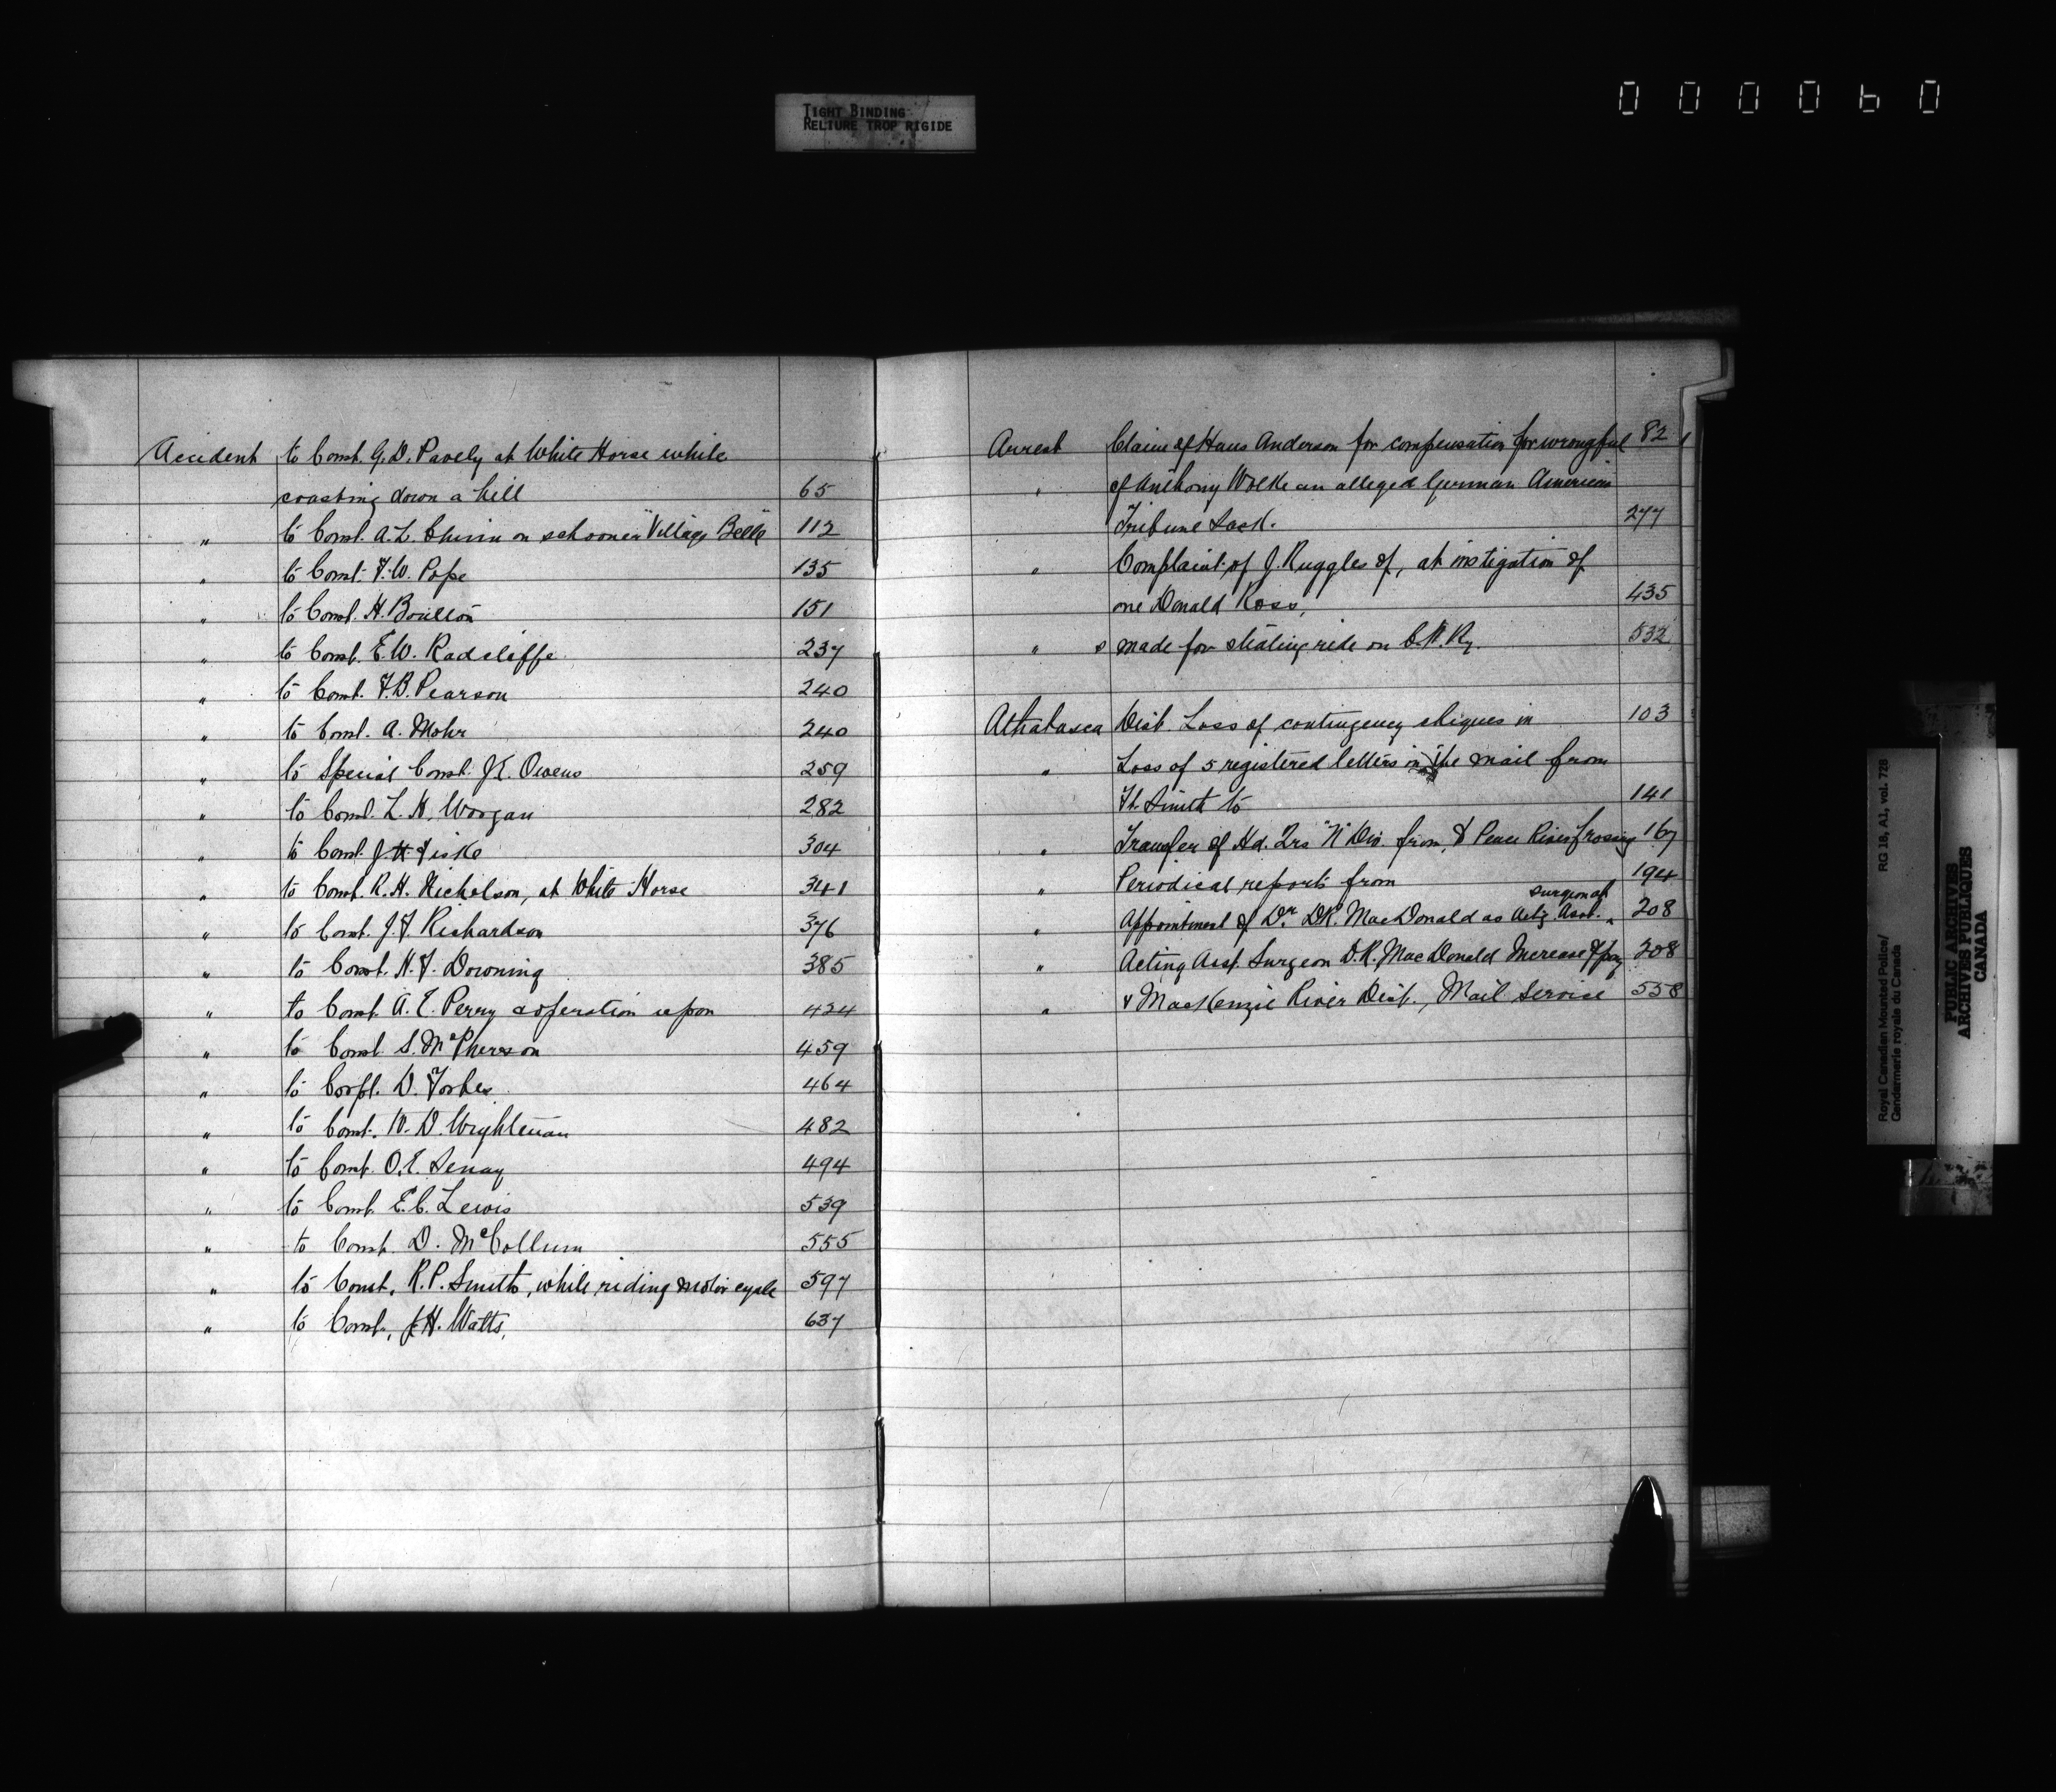 TIGHT BINDING
RELIURE TROP RIGIDE
000060
Accident to Const. G.D. Pavely at White Horse while
coasting down a hill 65
" to Const. A.L. on schooner "Village Belle" 112
" to Const. F.W. Pope 135
" to Const. H. Boulton 151
" to Const. E.W. Radcliffe 237
" to Const. F.B. Pearson 240
" to Const. A. Mohr 240
" to Special Const. J.E. Owens 259
" to Const. L.H. Woogan 282
" to Const. J.H. Fiske 304
" to Const. R.H. Nicholson, at White Horse 341
" to Const. J.F. Richardson 376
" to Const. H.F. Downing 385
" to Const. A.E. Perry & operation upon 424
" to Const. S. McPherson 459
" to Corpl. D. Forbes 464
" to Const. W.D. Wrightman 482
" to Const. O.E. Senay 494
" to Const. E.C. Lewis 539
" to Const. D. McCollum 555
" to Const. R.P. Smith, while riding motor cycle 597
" to Const. J.H. Watts, 637
Arrest Claim of Hans Anderson for compensation for wrongful 82
" of Anthony Wolke an alleged German American
Tribune Sask. 277
" Complaint of J. Ruggles of, at instigation of
one Donald Ross, 435
" s made for stealing ride on C.N.Ry. 532
Athabasca Dist. Loss of contingency cheques in 103
" Loss of 5 registered letters in the mail from
Ft. Smith to 141
" Transfer of Hd. Qrs "N" Div. from, to Peace River Crossing 167
" Periodical reports from 194
" Appointment of Dr. D.R. MacDonald as Actg. Asst. surgeon at 208
" Acting Asst. Surgeon D.R. MacDonald Increase of pay 308
" & MacKenzie River Dist., Mail Service 558
Royal Canadian Mounted Police/
Gendarmerie royale du Canada
RG 18, A1, vol. 728
PUBLIC ARCHIVES
ARCHIVES PUBLIQUES
CANADA